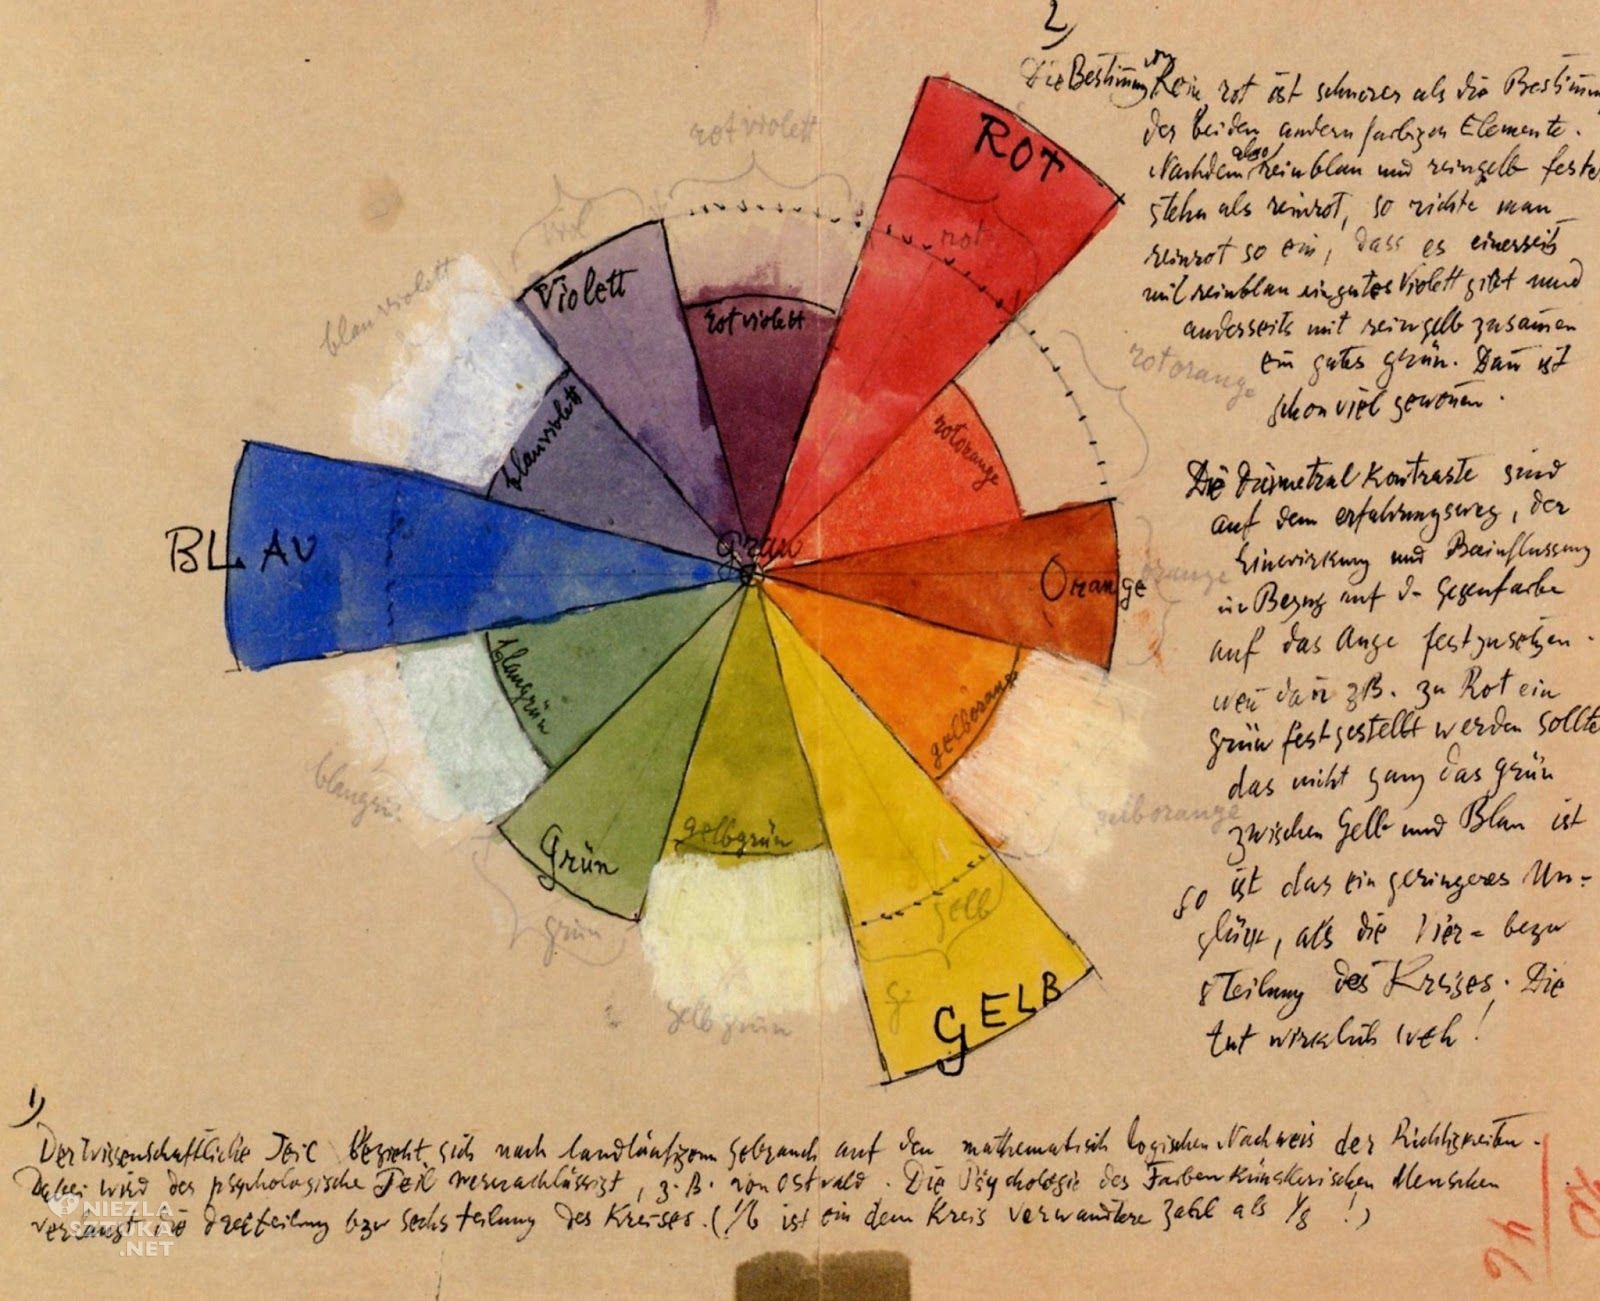 2)
Die Bestimmung von Rein rot ist schwerer als die Bestimm
der beiden andern farbigen Elemente.
Nachdem also reinblau und reingelb fester
stehn als reinrot, so richte man
reinrot so ein, dass es einerseits
mit reinblau ein gutes Violett gibt und
anderseits mit reingelb zusamen
ein gutes grün. Dañ ist
schon viel gewonen.
Die Diametral Kontraste sind
auf dem erfahrungsweg, der
Einwirkung und Beinflussung
in Bezug auf d- Gegenfarbe
auf das Auge festzusetzen.
weñ dañ z.B. zu Rot ein
Grün festgestellt werden sollte
das nicht ganz das Grün
zwischen Gelb und Blau ist
so ist das ein geringeres Un=
glück, als die Vier= bezw
8 Teilung des Kreises. Die
tut wirklich weh!
rotviolett
ROT
viol
rot
blauviolett
Violett
rotviolett
rotorange
blauviolett
rotorange
BLAU
Grau
Orange
orange
blaugrün
gelborange
blaugrün
gelbgrün
gelborange
Grün
gelb
grün
ge
gelbgrün
GELB
1)
Der Wissenschaftliche Teil bezieht sich nach landläufigem Gebrauch auf den mathematisch logischen Nachweis der Richtigkeiten.
Dabei wird der psychologische Teil vernachlässigt, z.B. von Ostwald. Die Psychologie des Farbenkünstlerischen Menschen
verlangt die Dreiteilung bzw Sechsteilung des Kreises. (1/6 ist ein dem Kreis verwandtere Zahl als 1/8 !)
NIEZLA
SZTUKA
.NET